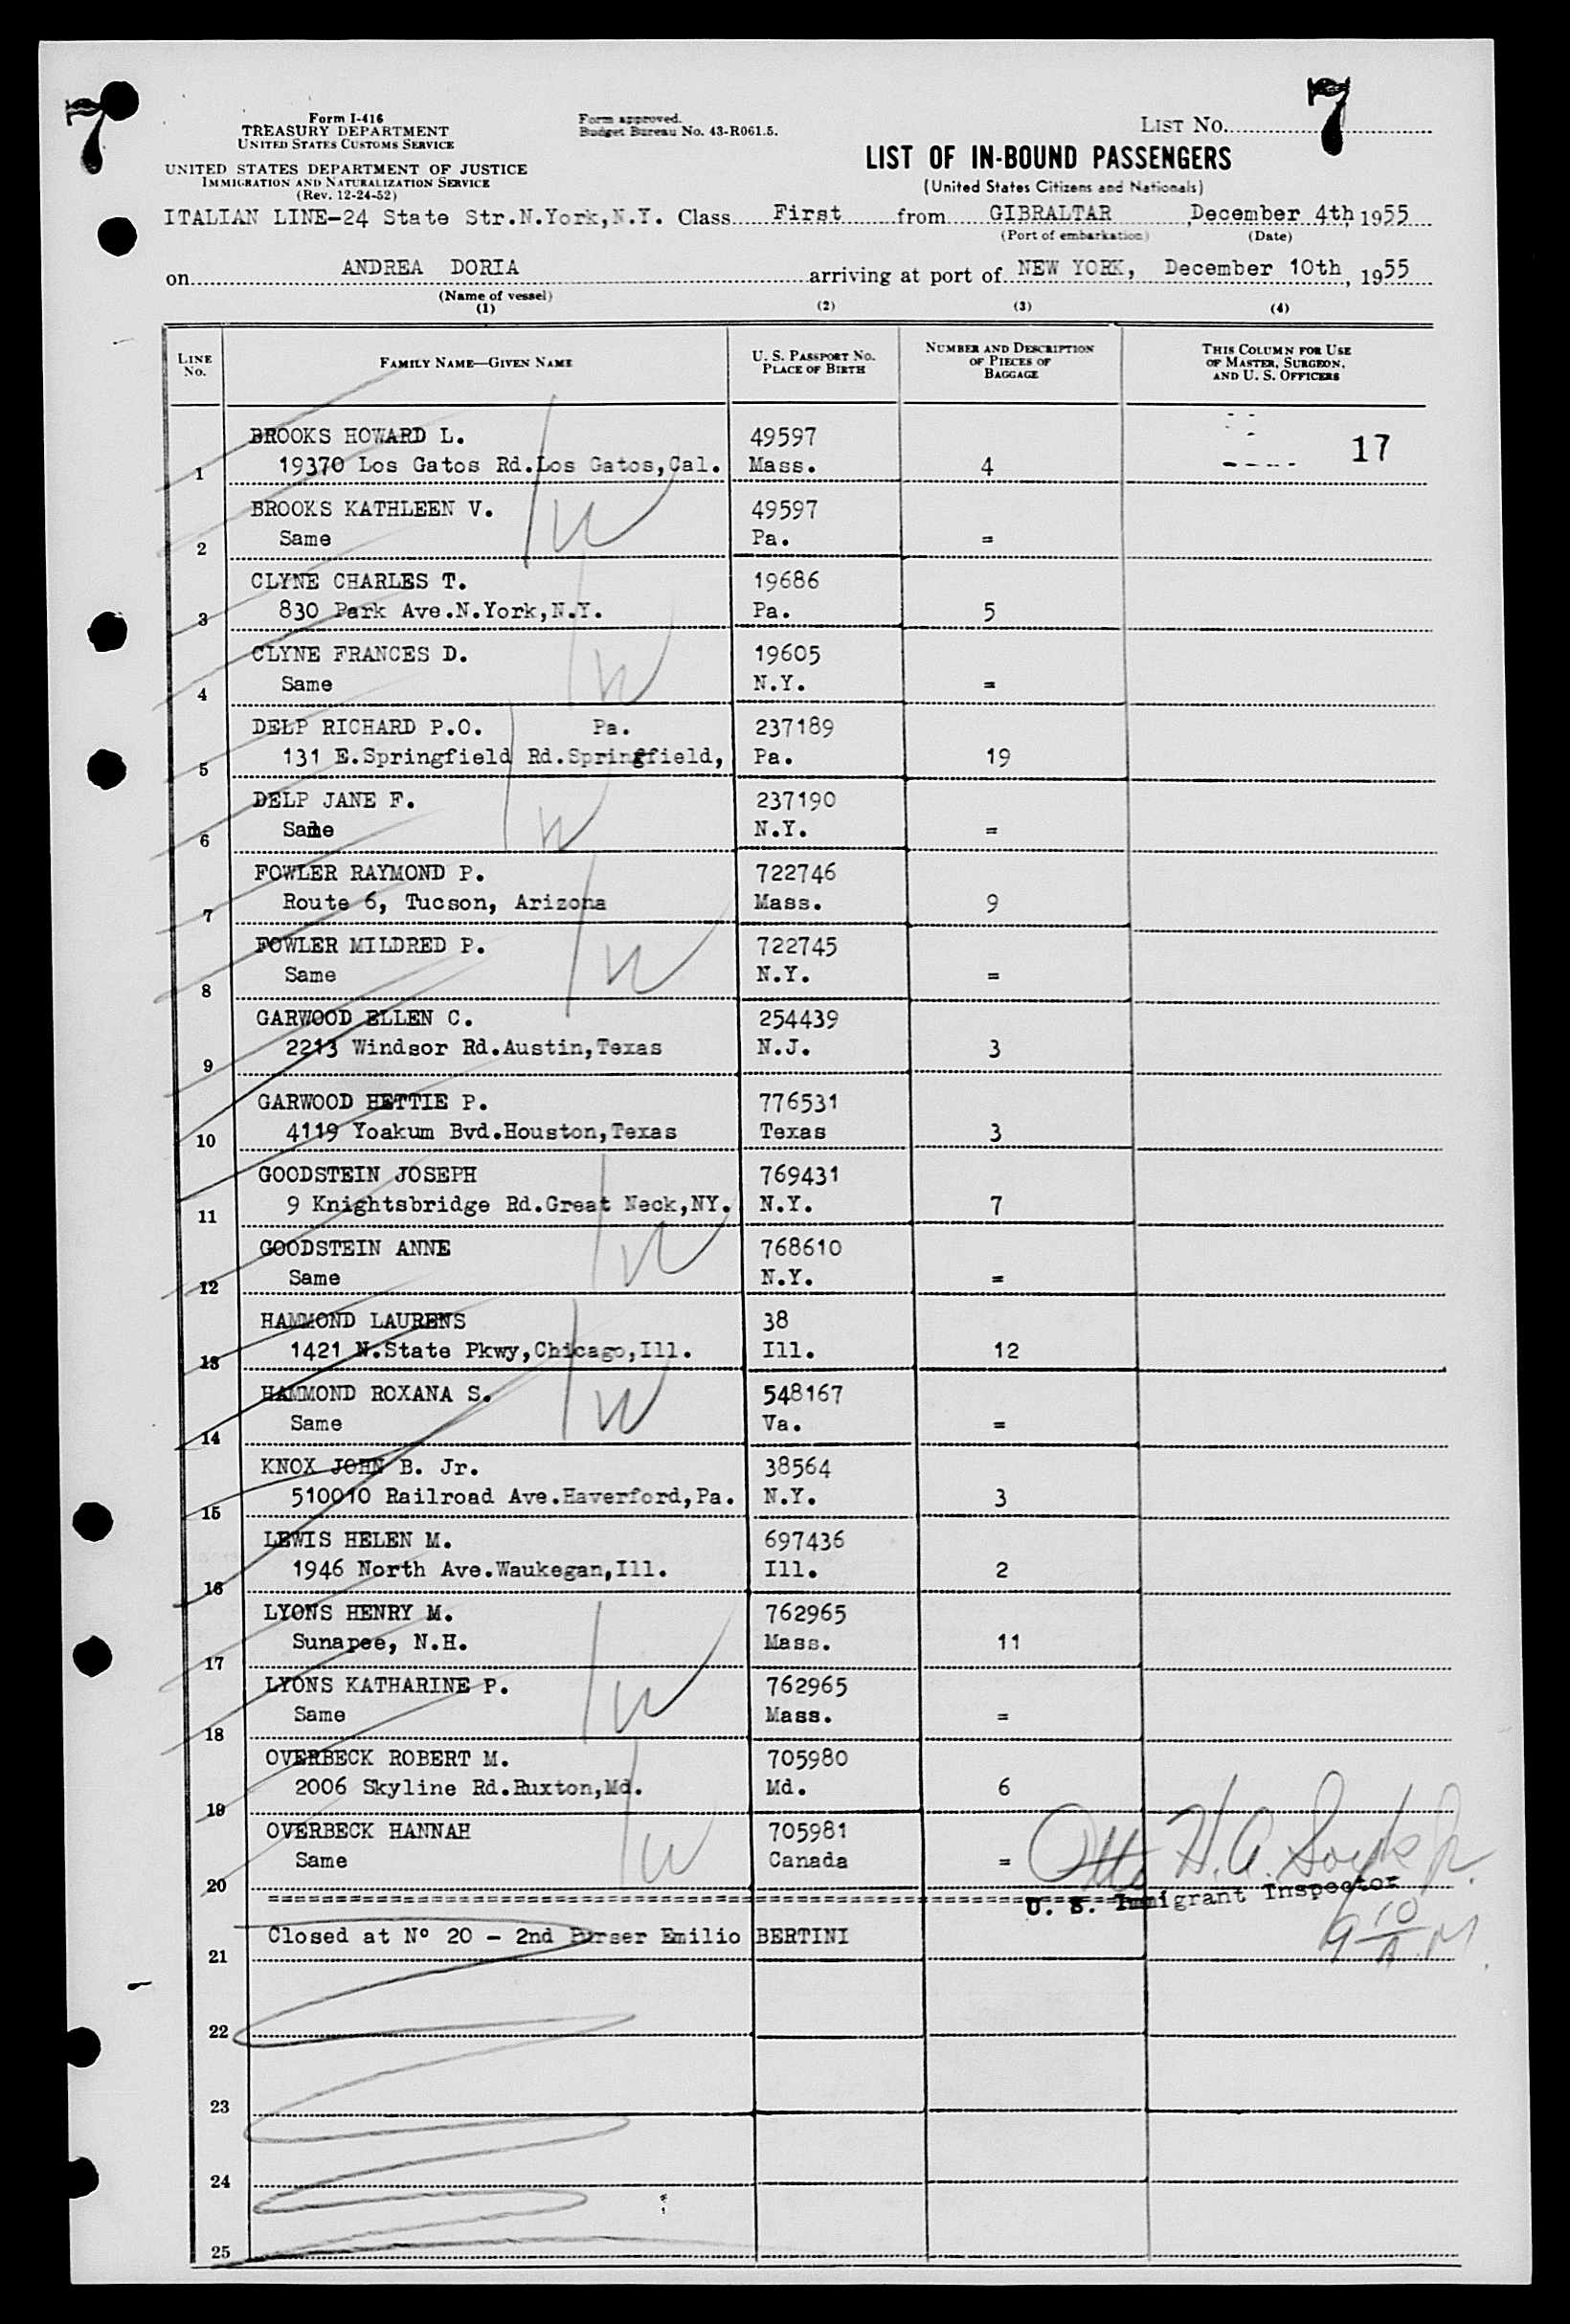 7
7
Form I-416
TREASURY DEPARTMENT
UNITED STATES CUSTOMS SERVICE
UNITED STATES DEPARTMENT OF JUSTICE
IMMIGRATION AND NATURALIZATION SERVICE
(Rev. 12-24-52)
Form approved.
Budget Bureau No. 43-R061.5.
LIST No.
LIST OF IN-BOUND PASSENGERS
(United States Citizens and Nationals)
ITALIAN LINE-24 State Str.N.York,N.Y. Class First from GIBRALTAR, December 4th, 1955
(Port of embarkation) (Date)
on ANDREA DORIA arriving at port of NEW YORK, December 10th, 1955
(Name of vessel)
(1) (2) (3) (4)
LINE No. FAMILY NAME—GIVEN NAME U. S. PASSPORT No. PLACE OF BIRTH NUMBER AND DESCRIPTION OF PIECES OF BAGGAGE THIS COLUMN FOR USE OF MASTER, SURGEON, AND U. S. OFFICERS
BROOKS HOWARD L. 49597 17
1 19370 Los Gatos Rd.Los Gatos,Cal. Mass. 4
BROOKS KATHLEEN V. 49597
2 Same Pa. =
CLYNE CHARLES T. 19686
3 830 Park Ave.N.York,N.Y. Pa. 5
CLYNE FRANCES D. 19605
4 Same N.Y. =
DELP RICHARD P.O. Pa. 237189
5 131 E.Springfield Rd.Springfield, Pa. 19
DELP JANE F. 237190
6 Same N.Y. =
FOWLER RAYMOND P. 722746
7 Route 6, Tucson, Arizona Mass. 9
FOWLER MILDRED P. 722745
8 Same N.Y. =
GARWOOD ELLEN C. 254439
9 2213 Windsor Rd.Austin,Texas N.J. 3
GARWOOD HETTIE P. 776531
10 4119 Yoakum Bvd.Houston,Texas Texas 3
GOODSTEIN JOSEPH 769431
11 9 Knightsbridge Rd.Great Neck,NY. N.Y. 7
GOODSTEIN ANNE 768610
12 Same N.Y. =
HAMMOND LAURENS 38
13 1421 N.State Pkwy,Chicago,Ill. Ill. 12
HAMMOND ROXANA S. 548167
14 Same Va. =
KNOX JOHN B. Jr. 38564
15 510010 Railroad Ave.Haverford,Pa. N.Y. 3
LEWIS HELEN M. 697436
16 1946 North Ave.Waukegan,Ill. Ill. 2
LYONS HENRY M. 762965
17 Sunapee, N.H. Mass. 11
LYONS KATHARINE P. 762965
18 Same Mass. =
OVERBECK ROBERT M. 705980
19 2006 Skyline Rd.Ruxton,Md. Md. 6
OVERBECK HANNAH 705981
20 Same Canada =
U. S. Immigrant Inspector
21 Closed at Nº 20 - 2nd Purser Emilio BERTINI
22
23
24
25